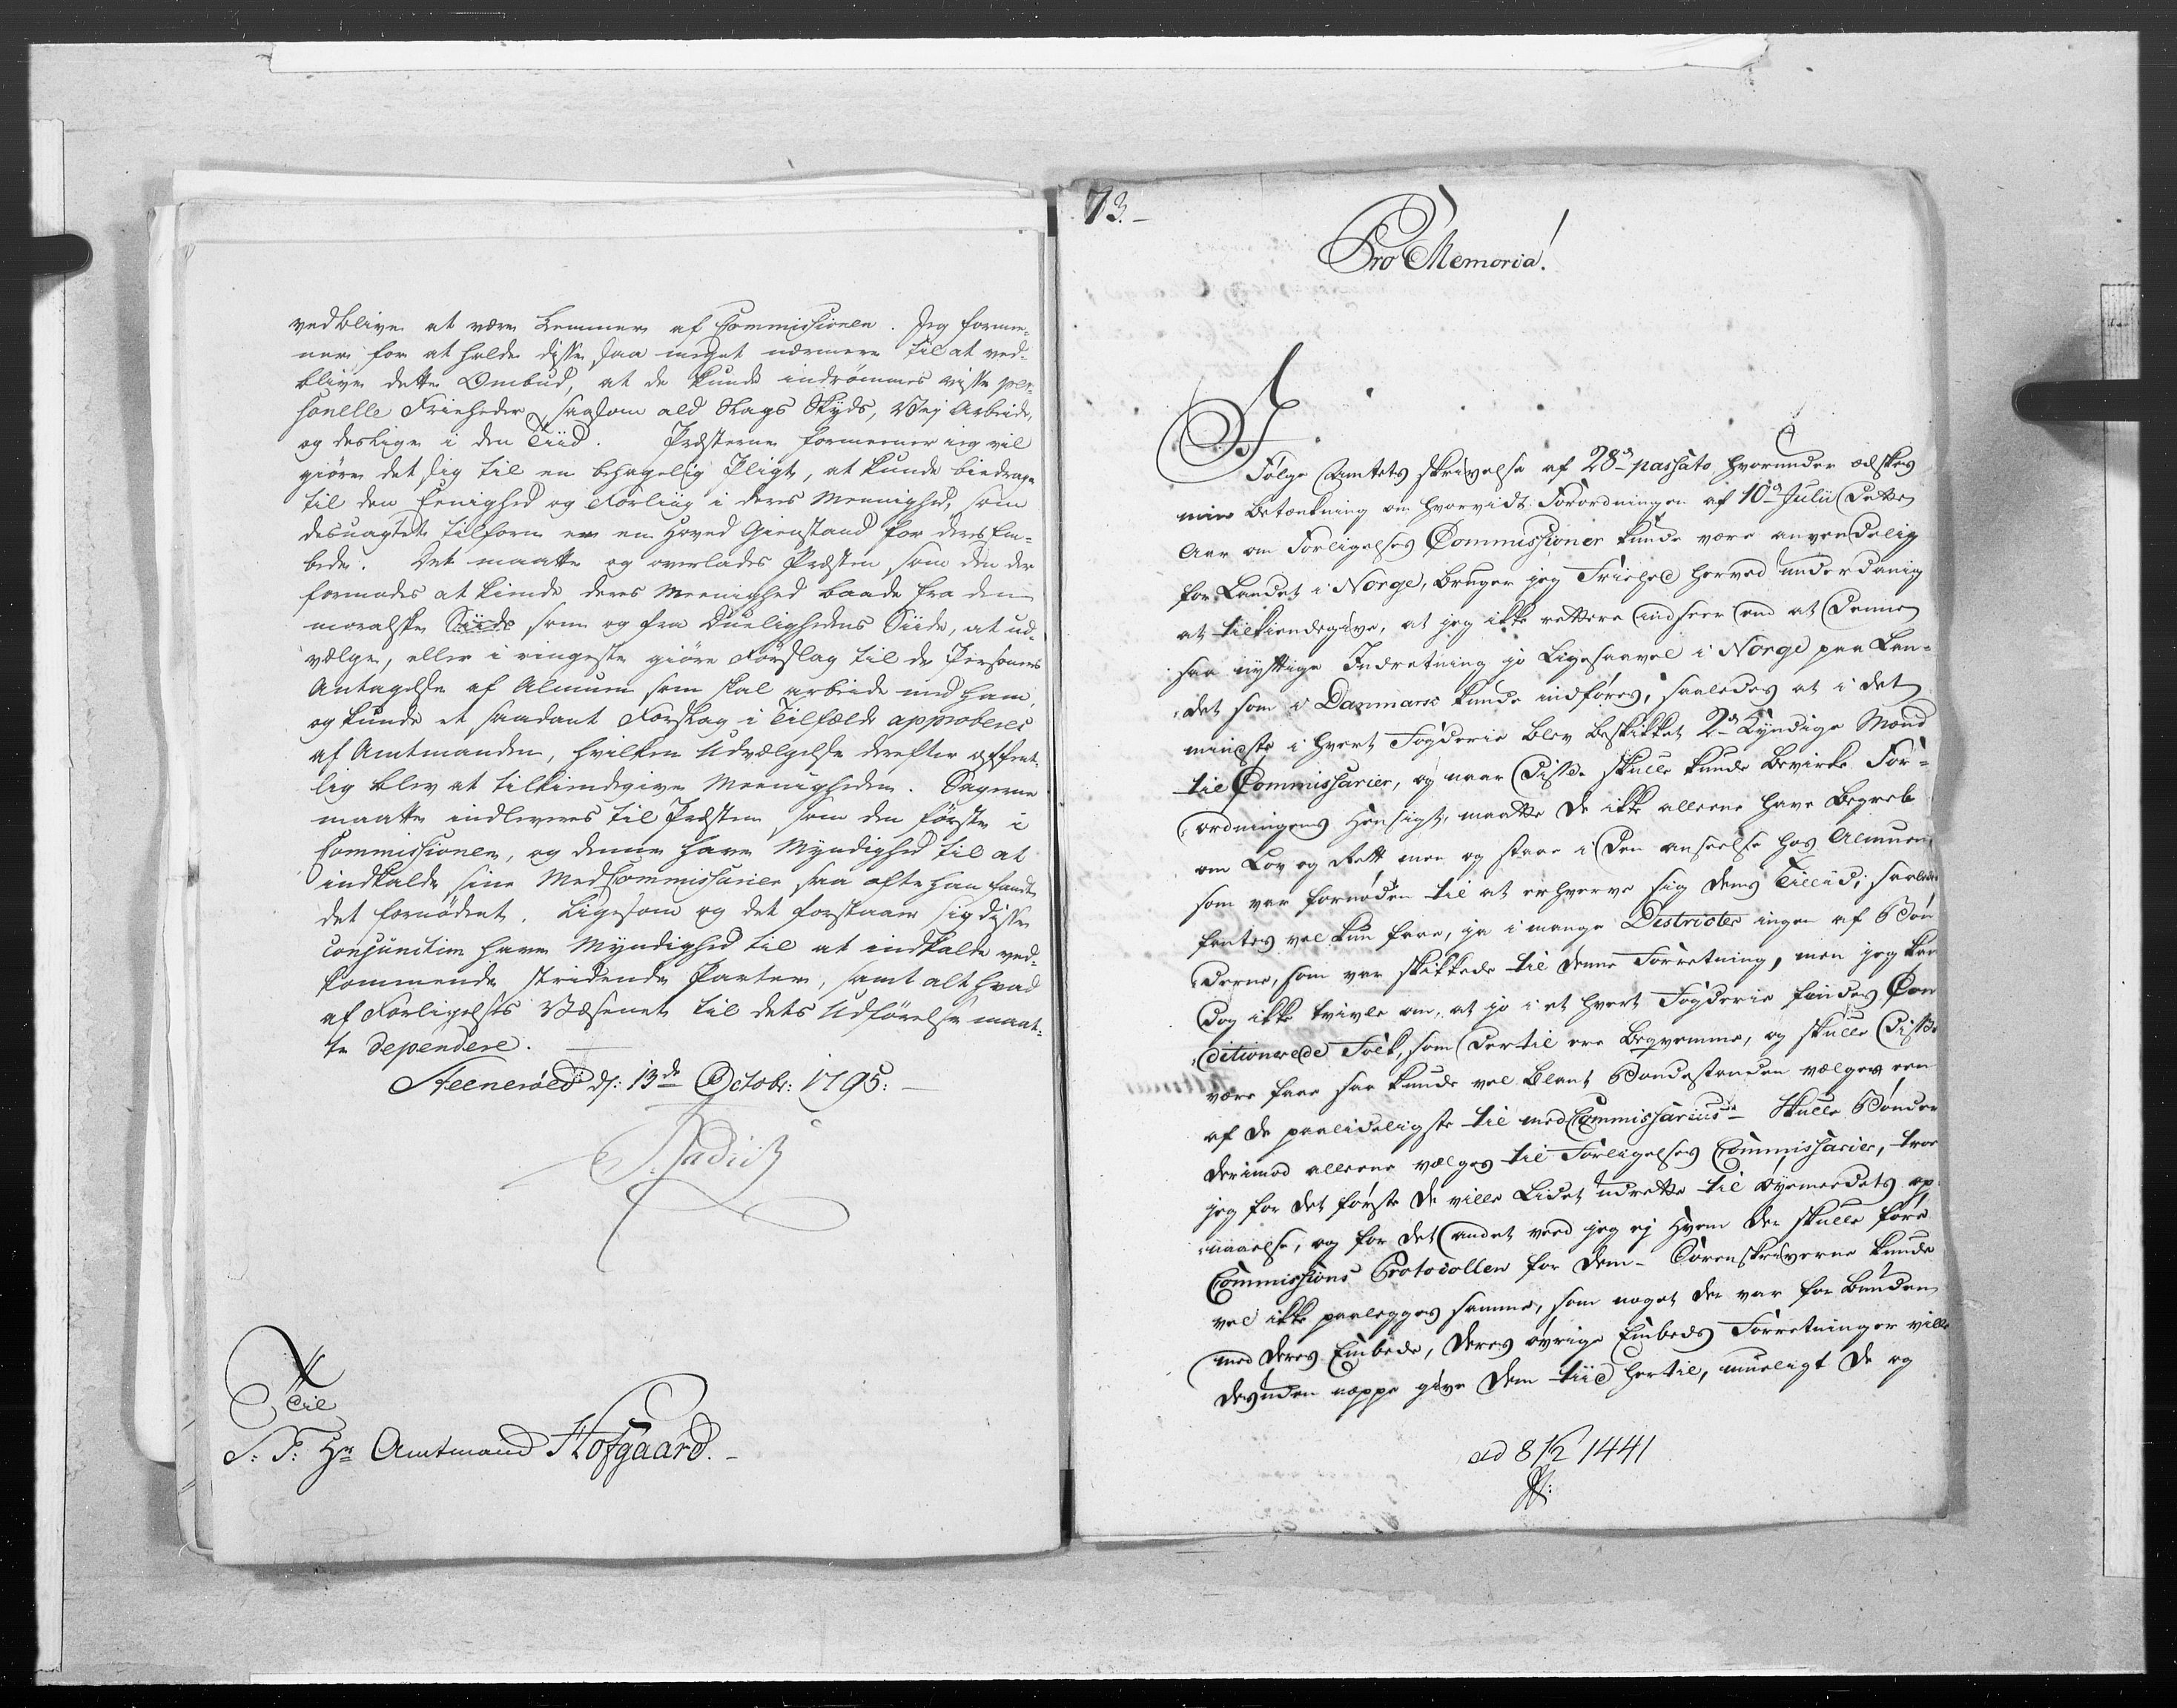 vedblive at være Lemmer af Commissionen. Jeg formee-
ner for at holde disse saa meget nærmere til at ved-
blive dette Ombud, at de kunde indrømmes visse per-
sonelle Friheder, saasom ald Slags Skyds, Vej Arbeide,
og deslige i den Tiid. Præsterne formeener jeg vil
giøre det sig til en behagelig Pligt, at kunde biedrage
til den Eenighed og Forliig i deres Meenighed, som
desuagtet tilforn er en Hoved Gienstand for deres Em-
bede. Det maatte og overlades Præsten, som den der
formodes at kiende deres Meenighed baade fra den
moralske Siide som og fra Duelighedens Siide, at ud-
vælge, eller i ringeste giøre Forslag til de Personers
Antagelse af Almuen som skal arbeide med ham,
og kunde et saadant Forslag i Tilfælde approberes
af Amtmanden, hvilken Udvælgelse derefter offent-
lig blev at tilkiendegive Meenigheden. Sagerne
maatte indleveres til Præsten som den første i
Commissionen, og denne have Myndighed til at
indkalde sine MedCommissarier saa ofte han fandt
det fornødent. Ligesom og det forstaaer sig disse
conjunctim have Myndighed til at indkalde ved-
kommende stridende Parter, samt alt hvad
af Forligelses Væsenet til dets Udførelse maat-
te dependere.
Steenerød d: 13de Octobr: 1795.
Til
S: T: Hr Amtmand Hofgaard.
73.
Pro Memoria!
I
Følge Amtets skrivelse af 28de passato, hvorunder æskes
min Betænkning om hvorvidt Forordningen af 10de Julii dette
Aar om Forligelses Commissioner kunde være anvendelig
for Landet i Norge, bruger jeg Friehed herved underdanig
at tilkiendegive, at jeg ikke rettere indseer end at denne
saa nyttige Indretning jo ligesaavel i Norge paa Lan-
det som i Danmark kunde indføres, saaledes at i det
mindste i hvert Fogderie blev beskikket 2de kyndige Mænd
til Commissarier, og naar disse skulle kunde bevirke For-
ordningens Hensigt, maatte de ikke alleene have Begreb
om Lov og Rett men og staae i den anseelse hos Almuen,
som var fornøden til at erhverve sig dens Tillid; saaledes
fantes vel kun faae, ja i mange Districter ingen af Bøn-
derne, som var skikkede til denne Forretning, men jeg kan
dog ikke tvivle om, at jo i et hvert Fogderie findes Con-
ditionerede Folk, som dertil ere beqvemme, og skulle disse
være faae saa kunde vel blant Bondestanden vælges een
af de paalideligste til medCommissarius. Skulle Bønder
derimod alleene vælges til Forligelses Commissarier, troer
jeg for det første de ville lidet udrette til øyemeedets op-
naaelse, og for det andet veed jeg ej hvem der skulle føre
Commissions Protocollen for dem. Sorenskriverne kunde
vel ikke paalegges samme, som noget der var forbunden
med deres Embede, deres øvrige Embeds Forretninger ville
desuden neppe give dem tiid hertil, mueligt de og
ad 8 1/2 1441